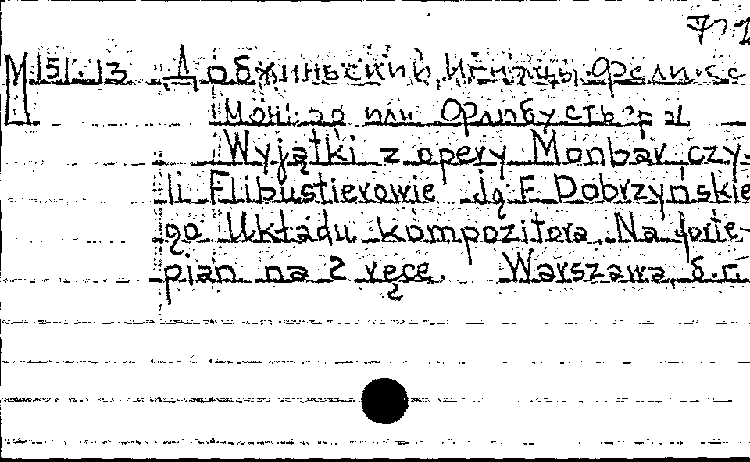 M 151.13 Добжиньский, Игнацы Феликс
Монбар или Флибустьеры
Wyjątki z opery Monbar czy-
li Flibustierowie Ig. F. Dobrzyńskie
go Układu kompozitora. Na forte-
pian na 2 ręce. Warszawa, б.г.